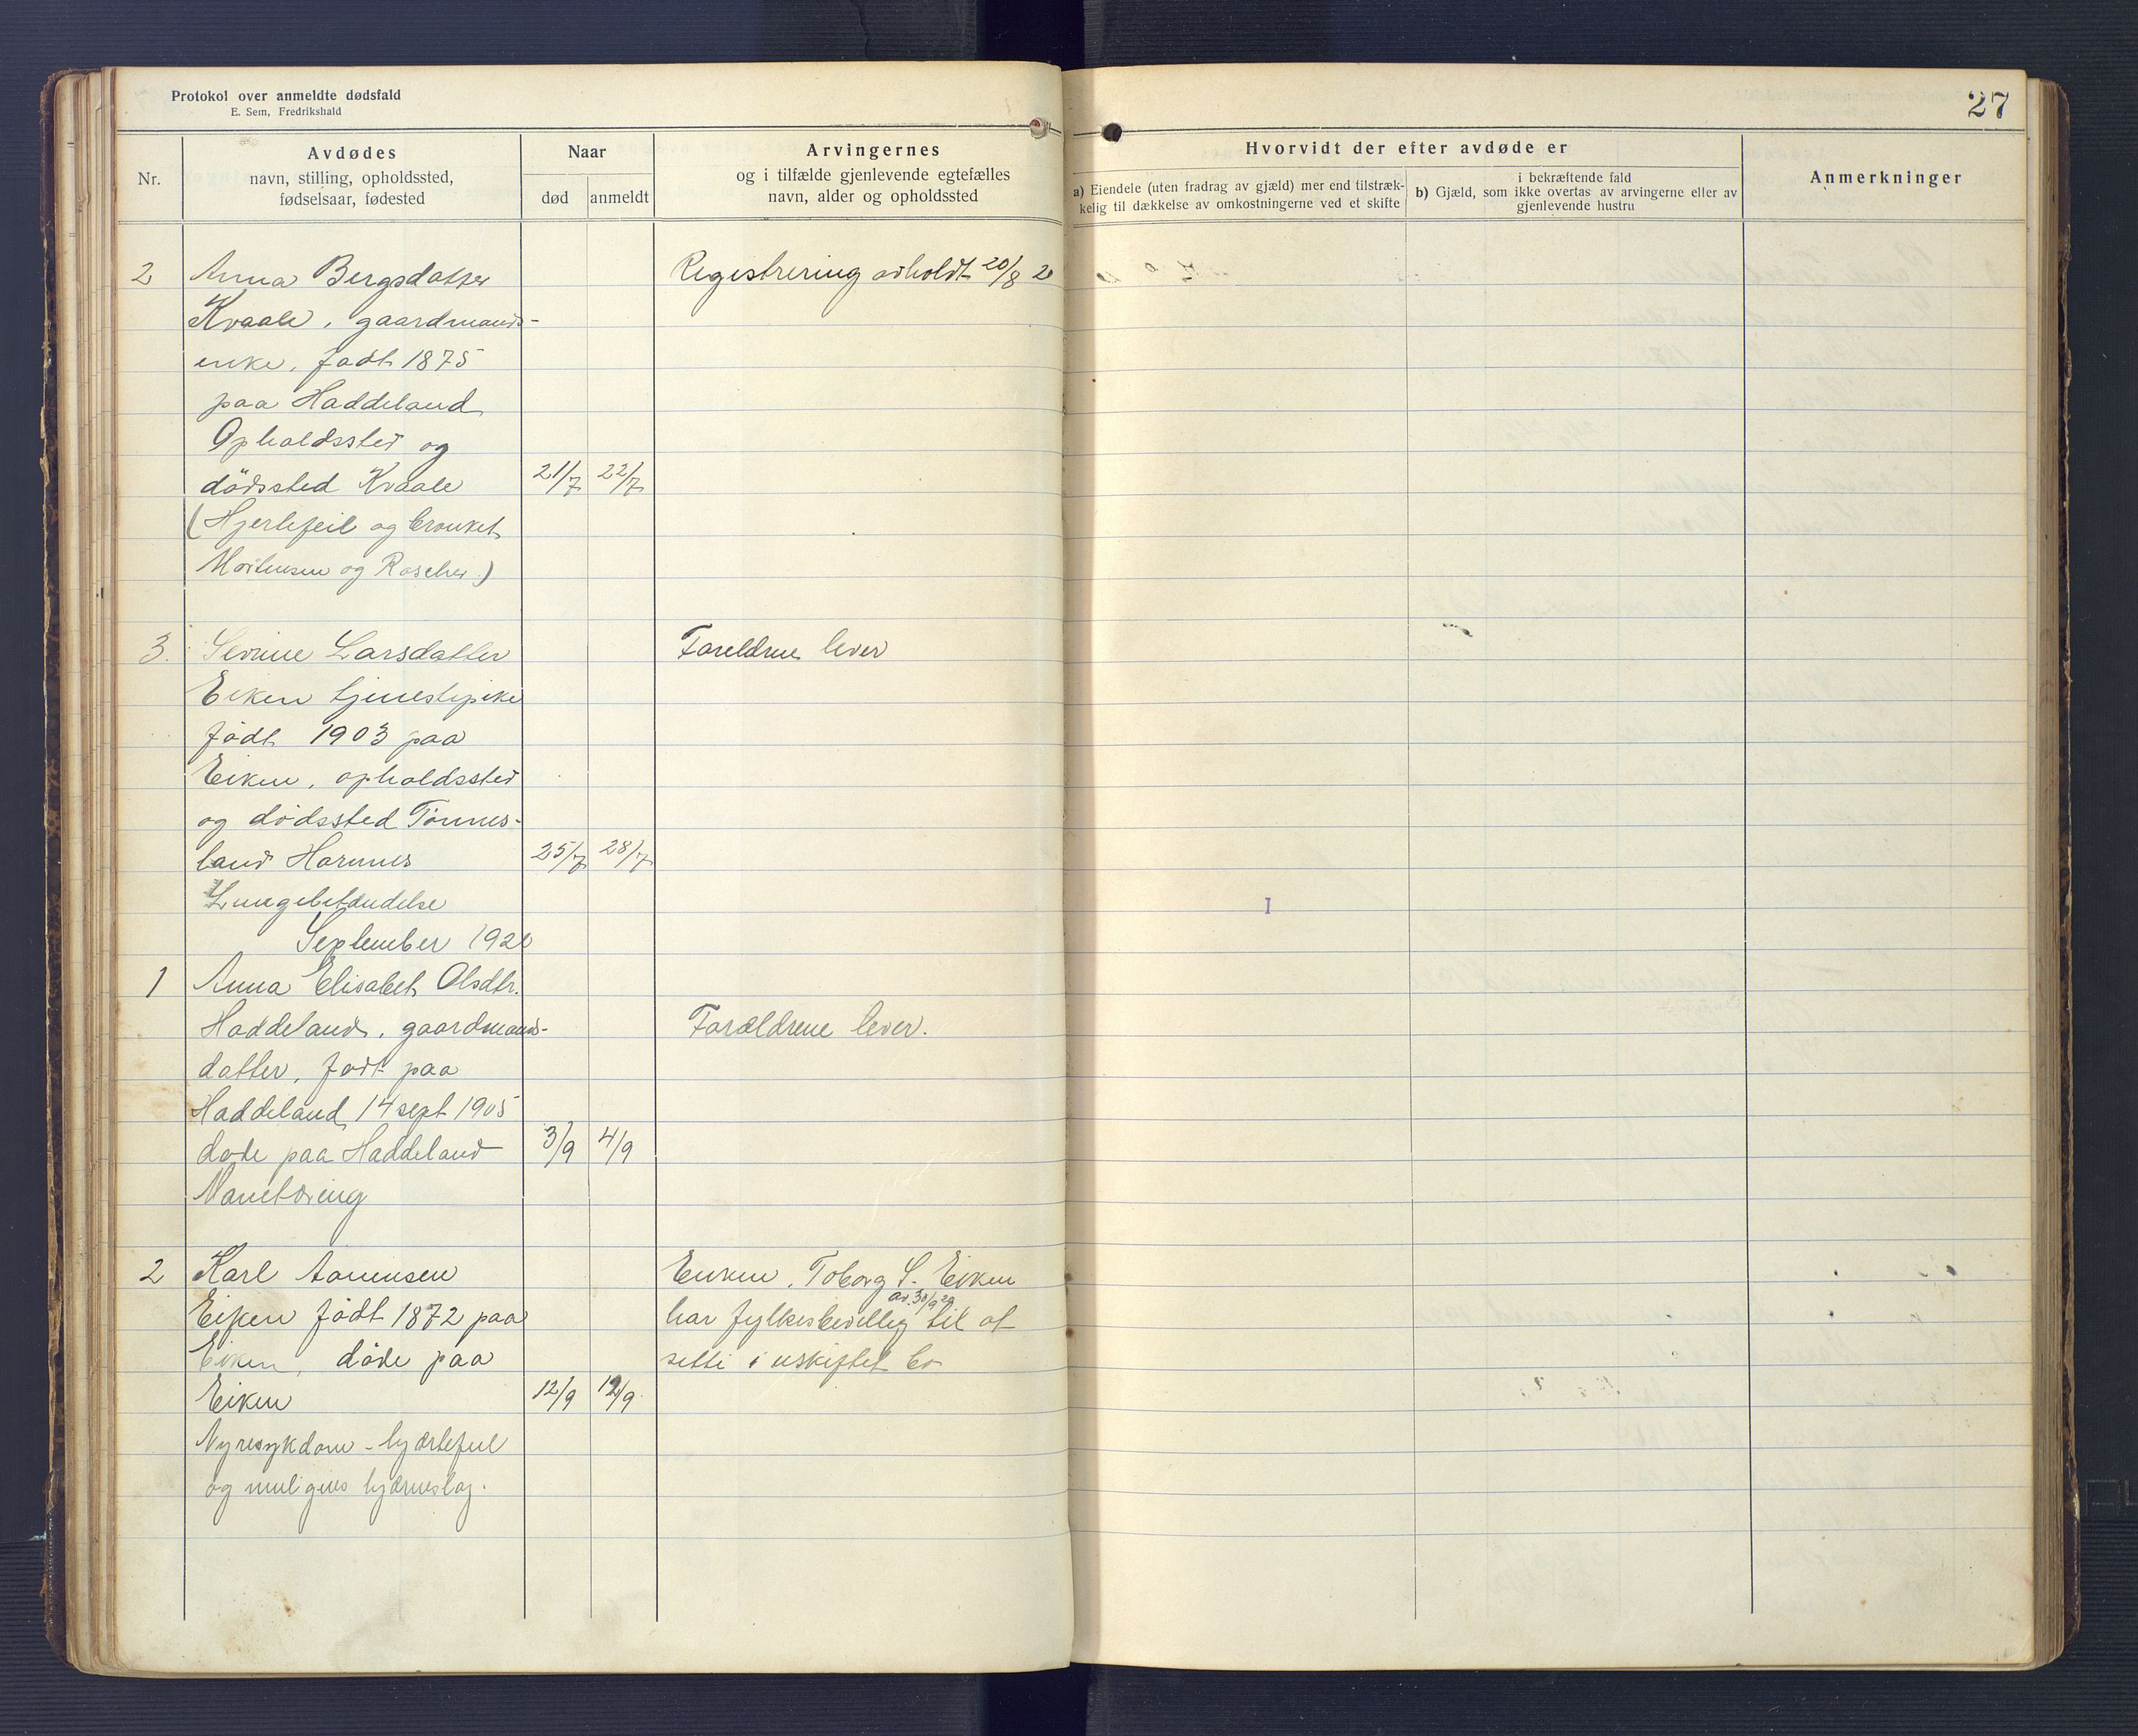 Protokol over anmeldte dødsfald
E. Sem, Fredrikshald
27
Nr.
Avdødes
navn, stilling, opholdssted,
fødselsaar, fødested
Naar
død
anmeldt
Arvingernes
og i tilfælde gjenlevende egtefælles
navn, alder og opholdssted
Hvorvidt der efter avdøde er
a) Eiendele (uten fradrag av gjæld) mer end tilstræk-
kelig til dækkelse av omkostningerne ved et skifte
i bekræftende fald
b) Gjæld, som ikke overtas av arvingerne eller av
gjenlevende hustru
Anmerkninger
2 Anna Bergsdatter Registrering avholdt 20/8 20
Kvaale, gaardmands-
enke, født 1875
paa Haddeland
Opholdssted og
dödssted Kvaale 21/7 22/7
(Hjertefeil og bronket
Mortensen og Roscher.)
3. Sevrine Larsdatter Foreldrene lever
Eiken tjenestepike
født 1903 paa
Eiken, opholdssted
og dødssted Tonnes-
land Hornnes 25/7 28/7
Lungebetændelse
September 1920
1 Anna Elisabet Olsdtr.
Haddeland, gaardmands- Forældrene lever.
datter, født paa
Haddeland 14 sept 1905
døde paa Haddeland 3/9 4/9
Mavetæring
2 Karl Aanensen Enken, Toborg S. Eiken
av 30/9 20
Eiken født 1872 paa har fylkesbevilling til at
Eiken, døde paa sitte i uskiftet bo
Eiken 12/9 12/9.
Nyresykdom - hjærtefeil
og muligens hjærneslag.